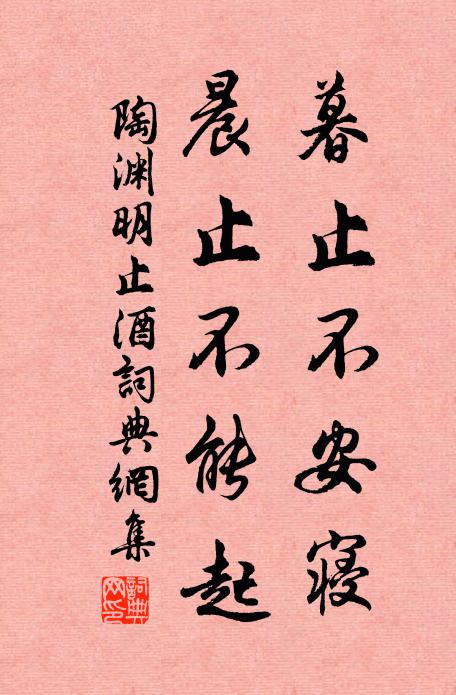 暮止不安寝
晨止不能起
陶渊明止酒詞典網集
詞典
网印